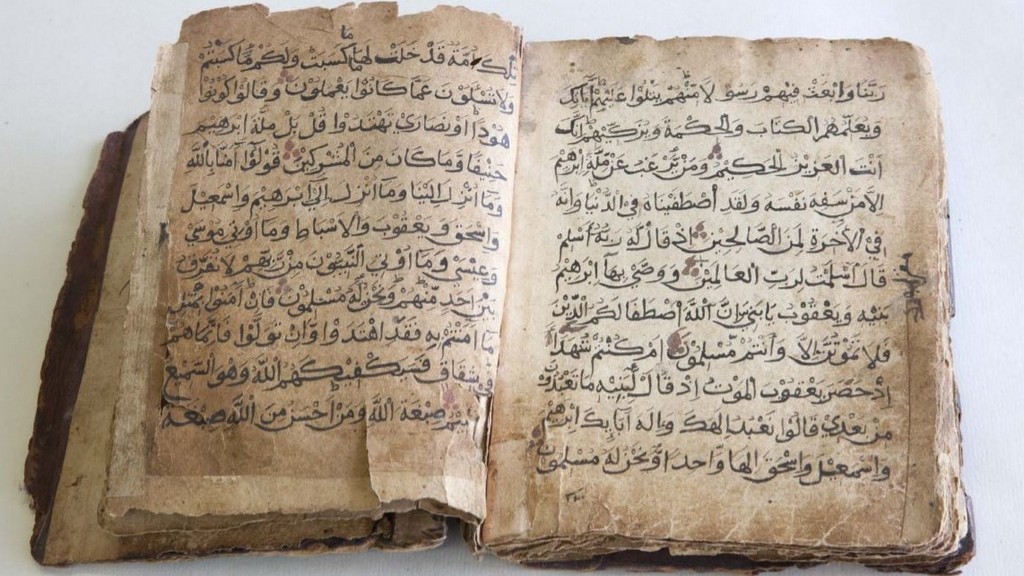 ربنا وابعث فيهم رسولا منهم يتلوا عليهم اياتك
ويعلمهم الكتاب والحكمة ويزكيهم انك
انت العزيز الحكيم ومن يرغب عن ملة ابرهيم
الا من سفه نفسه ولقد اصطفيناه في الدنيا وانه
في الاخرة لمن الصالحين اذ قال له ربه اسلم
قال اسلمت لرب العالمين ووصي بها ابرهيم
بنيه ويعقوب يابني ان الله اصطفا لكم الدين
فلا تموتن الا وانتم مسلمون ام كنتم شهدا
اذ حضر يعقوب الموت اذ قال لبنيه ما تعبدون
من بعدي قالوا نعبد الهك واله ابايك ابرهيم
واسمعيل واسحق الها واحدا ونحن له مسلمون
تلك امة قد خلت لها ما كسبت ولكم ما كسبتم
ولا تسئلون عما كانوا يعملون وقالوا كونوا
هودا او نصاري تهتدوا قل بل ملة ابرهيم
حنيفا وما كان من المشركين قولوا امنا بالله
وما انزل الينا وما انزل الي ابرهيم واسمعيل
واسحق ويعقوب والاسباط وما اوتي موسي
وعيسي وما اوتي النبيون من ربهم لا نفرق
بين احد منهم ونحن له مسلمون فان امنوا بمثل
ما امنتم به فقد اهتدوا وان تولوا فانما هم
في شقاق فسيكفيكهم الله وهو السميع
العليم صبغة الله ومن احسن من الله صبغة